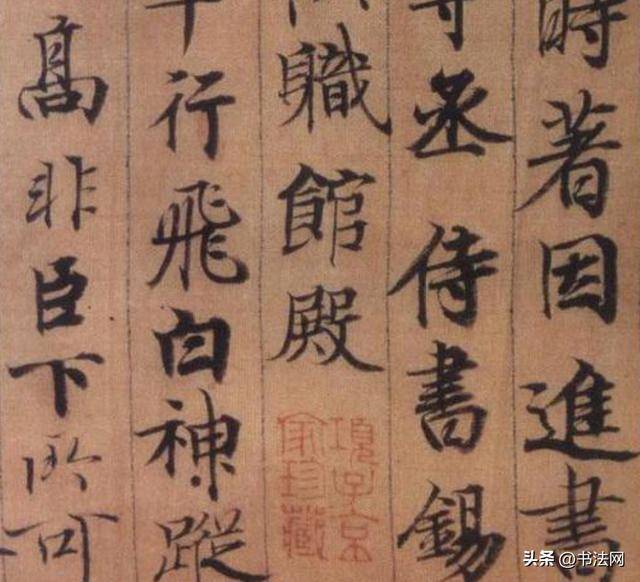 時著因進書
寺丞侍書錫
職館殿
行飛白神蹤
高非臣下所可
項子京家珍藏
头条@书法网